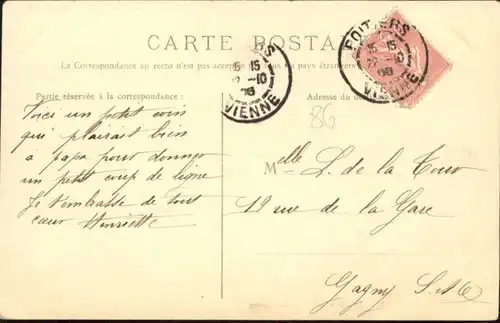 CARTE POSTA
La Correspondance au recto n'est pas accep us pays étrangers
Partie réservée à la correspondance :
Adresse du de
Voici un petit coin
qui plairait bien
à papa pour donner
un petit coup de ligne
Je t'embrasse de tout
cœur Henriette
RS
15
10
08
VIENNE
POITIERS
15 15
27 10
08
VIENNE
86
Melle L. de la Tour
19 rue de la Gare
Gagny S.&O